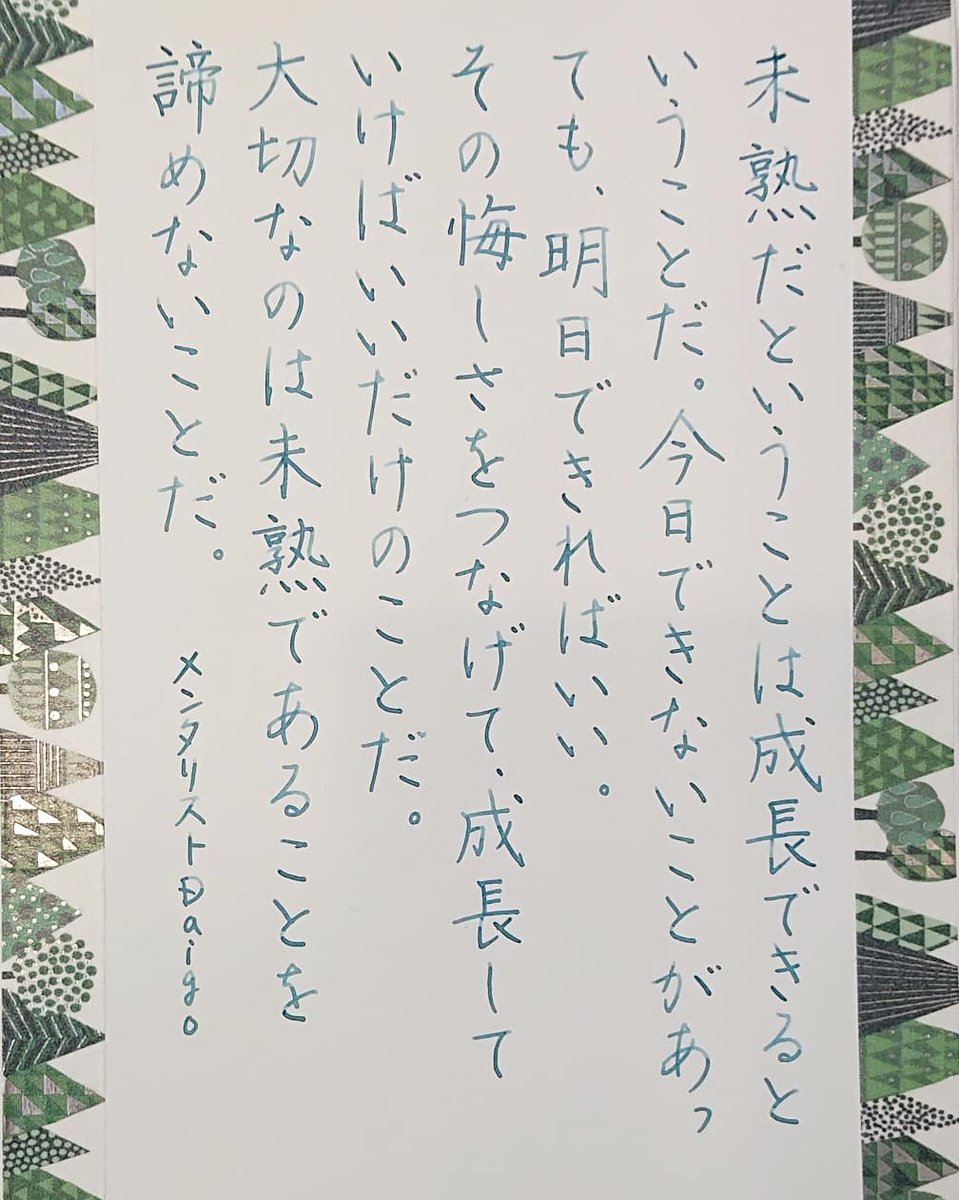 未熟だということは成長できると
いうことだ。今日できないことがあっ
ても、明日できればいい。
その悔しさをつなげて、成長して
いけばいいだけのことだ。
大切なのは未熟であることを
諦めないことだ。
メンタリストDaigo